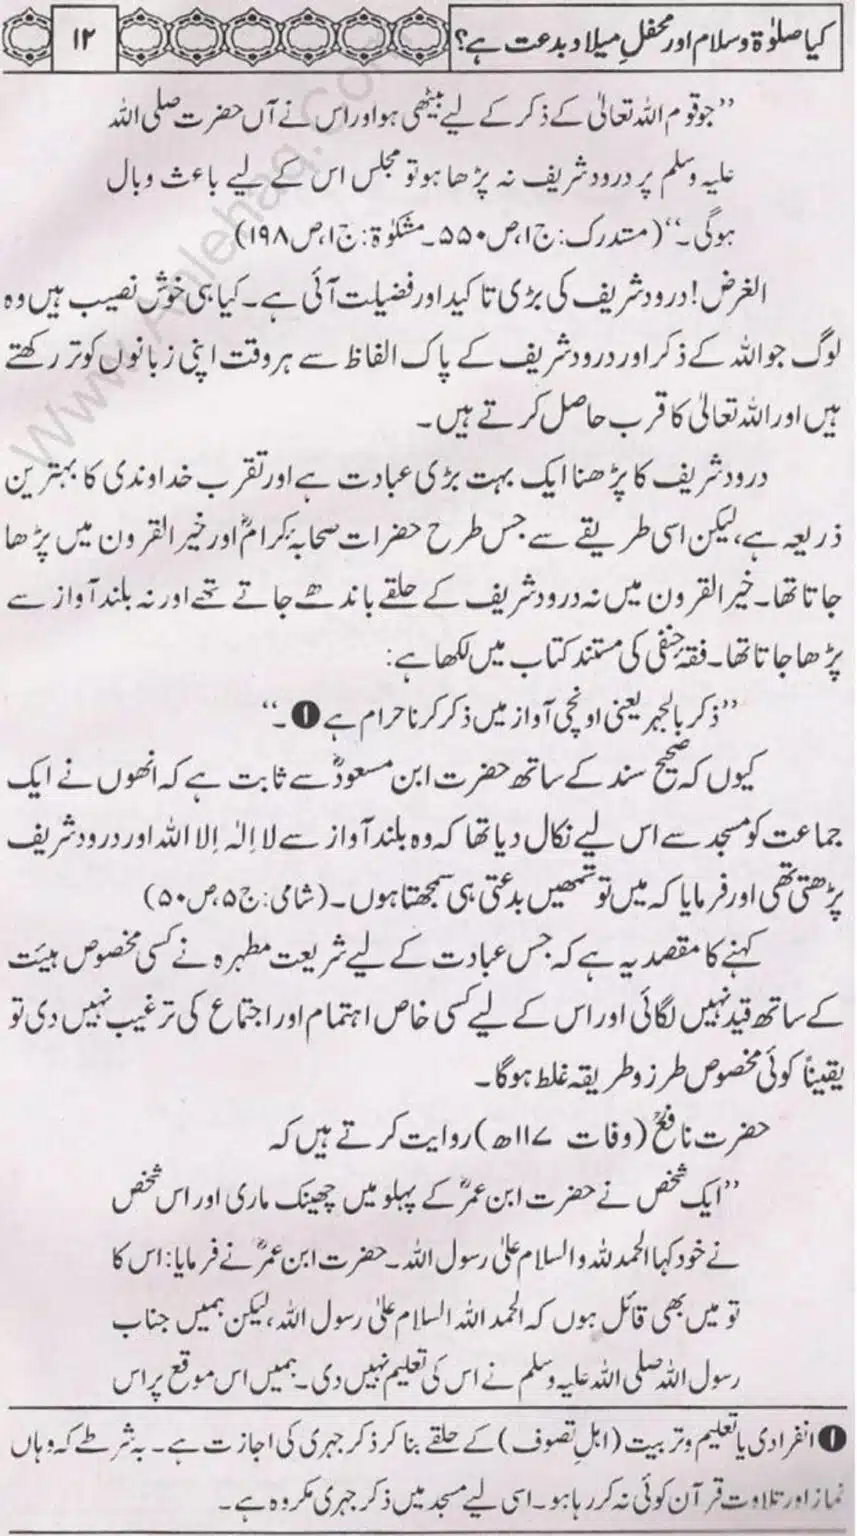 کیا صلوٰۃ و سلام اور محفلِ میلاد بدعت ہے؟
۱۲
’’جو قوم اللہ تعالیٰ کے ذکر کے لیے بیٹھی ہو اور اس نے آں حضرت صلی اللہ
علیہ وسلم پر درود شریف نہ پڑھا ہو تو مجلس اس کے لیے باعث وبال
ہوگی۔‘‘ (مستدرک: ج۱، ص ۵۵۰۔ مشکوٰۃ: ج۱، ص ۱۹۸)
الغرض! درود شریف کی بڑی تاکید اور فضیلت آئی ہے۔ کیا ہی خوش نصیب ہیں وہ
لوگ جو اللہ کے ذکر اور درود شریف کے پاک الفاظ سے ہر وقت اپنی زبانوں کو تر رکھتے
ہیں اور اللہ تعالیٰ کا قرب حاصل کرتے ہیں۔
درود شریف کا پڑھنا ایک بہت بڑی عبادت ہے اور تقرب خداوندی کا بہترین
ذریعہ ہے، لیکن اسی طریقے سے جس طرح حضرات صحابہٴ کرامؓ اور خیر القرون میں پڑھا
جاتا تھا۔ خیر القرون میں نہ درود شریف کے حلقے باندھے جاتے تھے اور نہ بلند آواز سے
پڑھا جاتا تھا۔ فقہٴ حنفی کی مستند کتاب میں لکھا ہے:
’’ذکر بالجہر یعنی اونچی آواز میں ذکر کرنا حرام ہے ❶۔‘‘
کیوں کہ صحیح سند کے ساتھ حضرت ابن مسعودؓ سے ثابت ہے کہ انھوں نے ایک
جماعت کو مسجد سے اس لیے نکال دیا تھا کہ وہ بلند آواز سے لا الٰہ الا اللہ اور درود شریف
پڑھتی تھی اور فرمایا کہ میں تو تمھیں بدعتی ہی سمجھتا ہوں۔ (شامی: ج۵، ص ۵۰)
کہنے کا مقصد یہ ہے کہ جس عبادت کے لیے شریعت مطہرہ نے کسی مخصوص ہیئت
کے ساتھ قید نہیں لگائی اور اس کے لیے کسی خاص اہتمام اور اجتماع کی ترغیب نہیں دی تو
یقیناً کوئی مخصوص طرز و طریقہ غلط ہوگا۔
حضرت نافعؒ (وفات ۱۱۷ھ) روایت کرتے ہیں کہ
’’ایک شخص نے حضرت ابن عمرؓ کے پہلو میں چھینک ماری اور اس شخص
نے خود کہا الحمد للہ والسلام علیٰ رسول اللہ۔ حضرت ابن عمرؓ نے فرمایا: اس کا
تو میں بھی قائل ہوں کہ الحمد اللہ السلام علیٰ رسول اللہ، لیکن ہمیں جناب
رسول اللہ صلی اللہ علیہ وسلم نے اس کی تعلیم نہیں دی۔ ہمیں اس موقع پر اس
❶ انفرادی یا تعلیم و تربیت (اہلِ تصوف) کے حلقے بنا کر ذکر جہری کی اجازت ہے۔ بہ شرطے کہ وہاں
نماز اور تلاوت قرآن کوئی نہ کر رہا ہو۔ اسی لیے مسجد میں ذکر جہری مکروہ ہے۔
www.Ahlehaq.Com